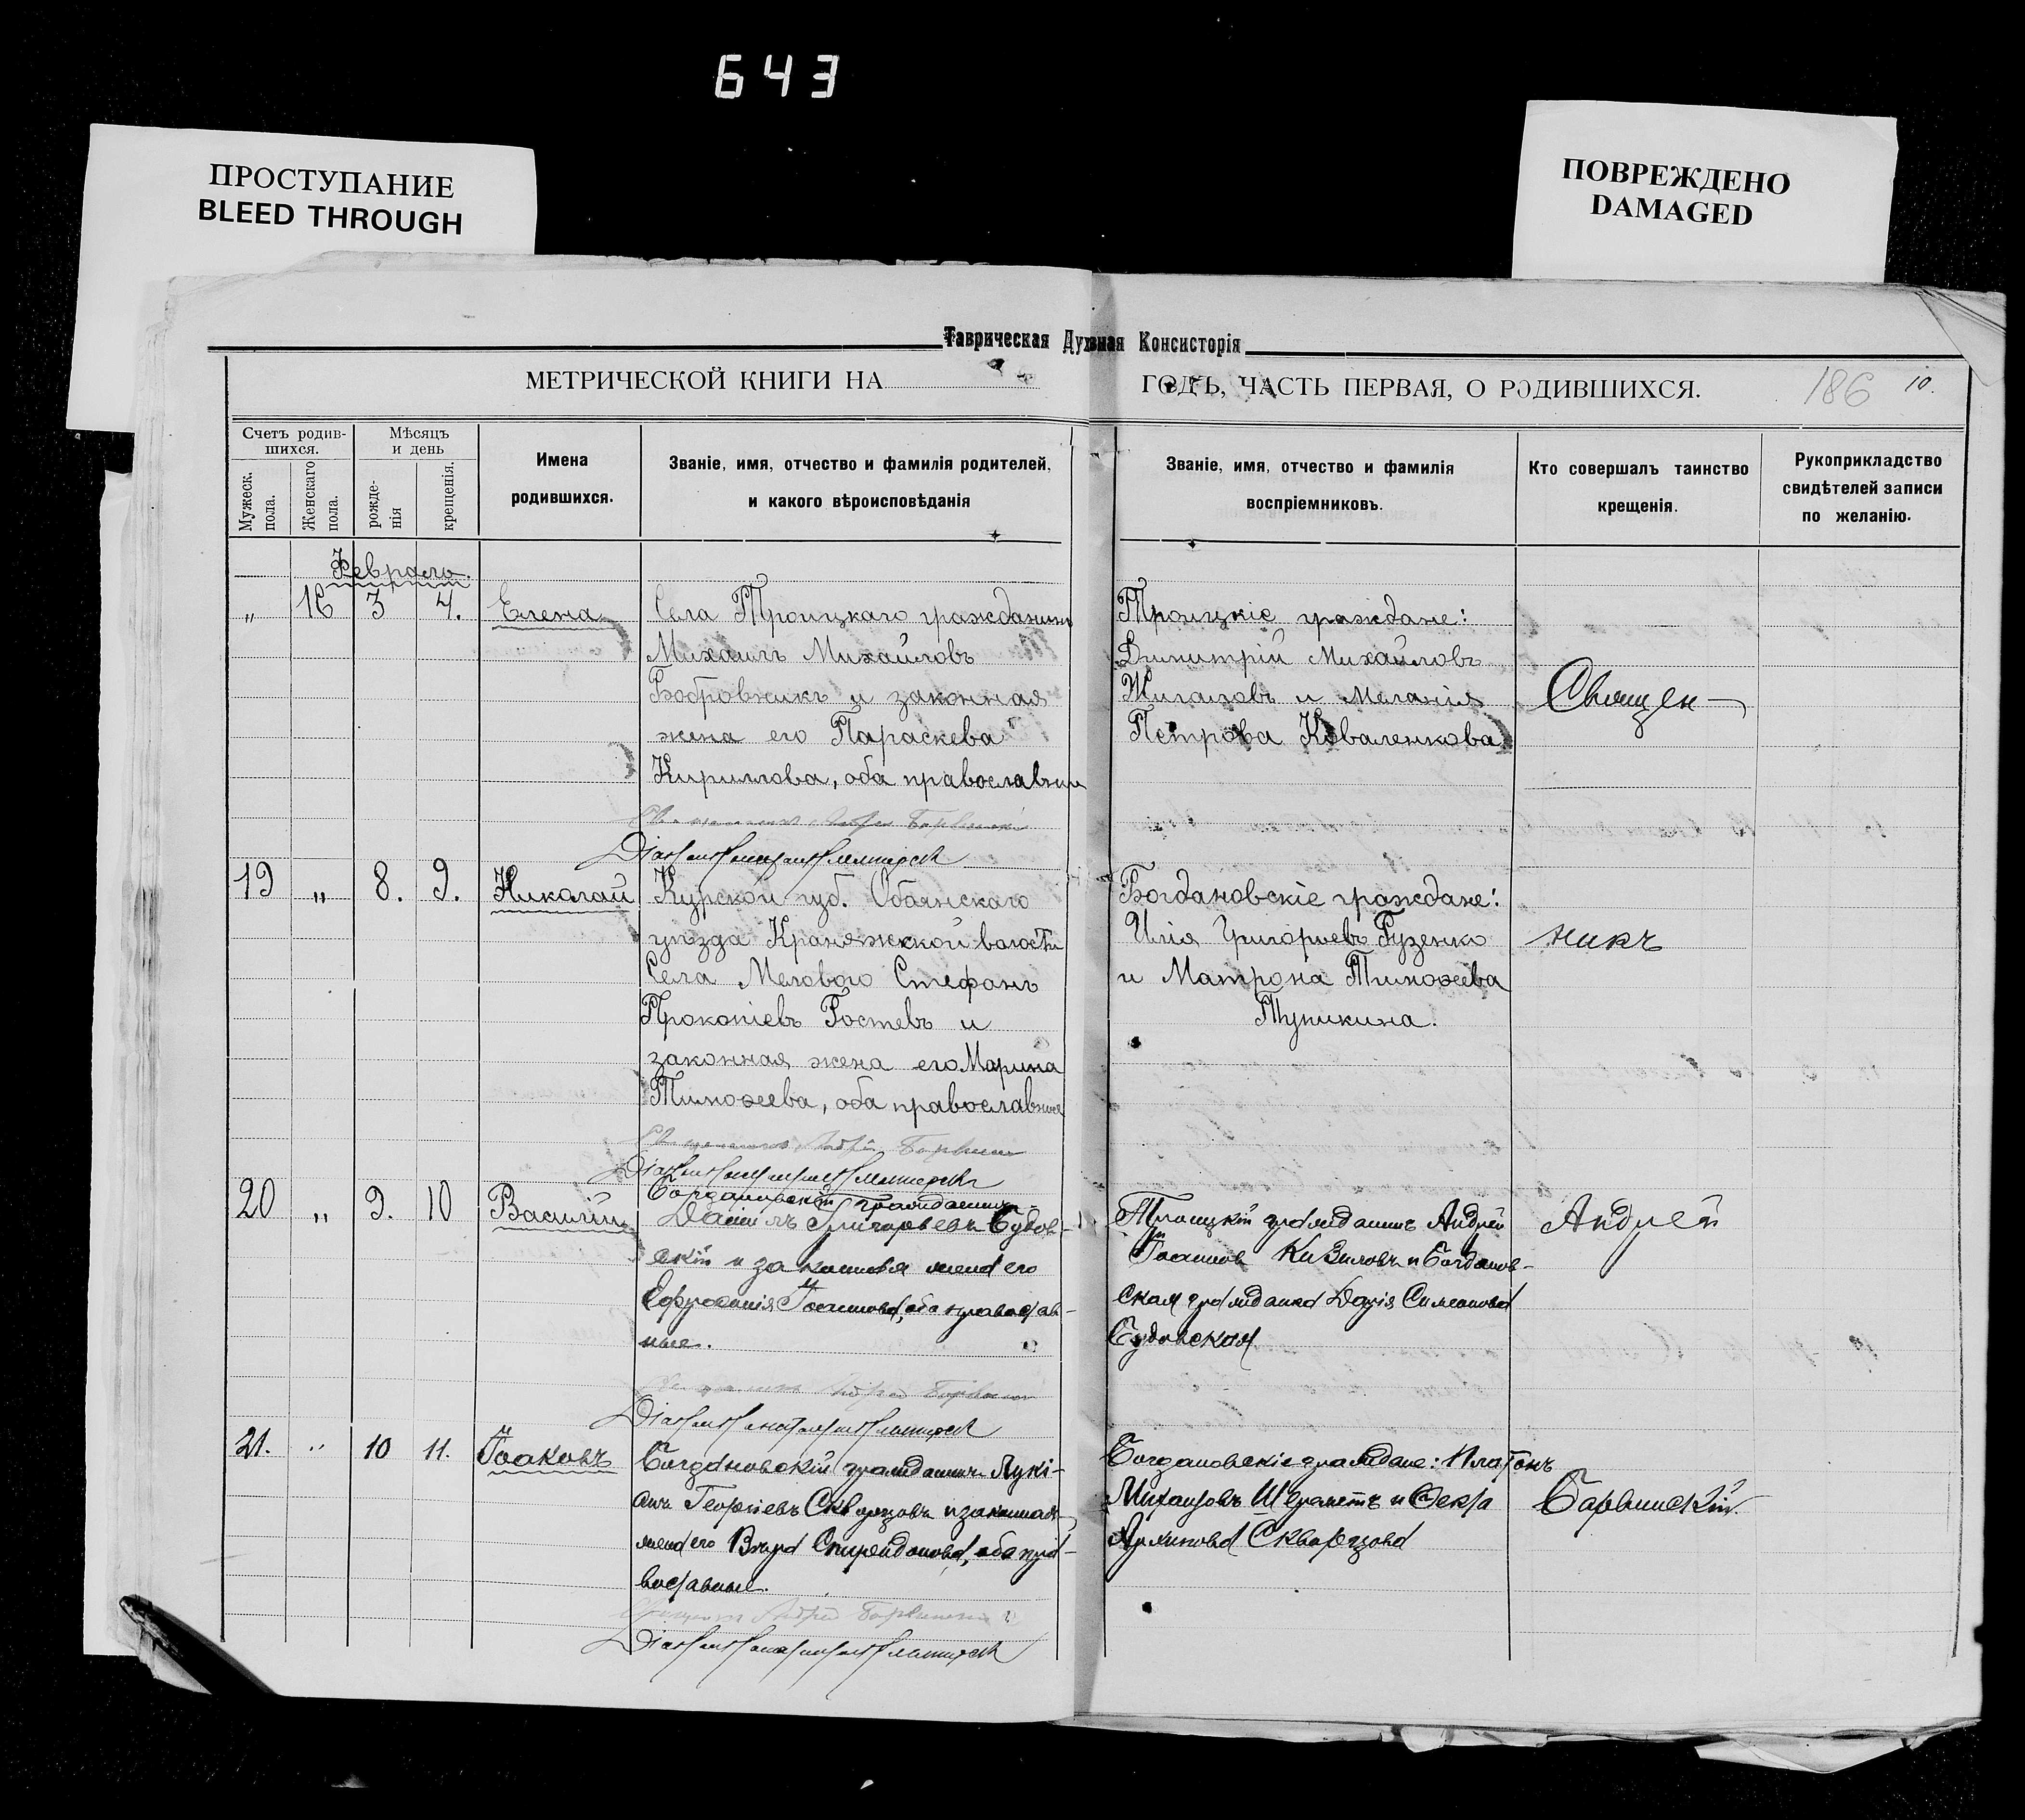 643
ПРОСТУПАНИЕ
BLEED THROUGH
ПОВРЕЖДЕНО
DAMAGED
Таврическая Духовная Консисторія
МЕТРИЧЕСКОЙ КНИГИ НА ГОДЪ, ЧАСТЬ ПЕРВАЯ, О РОДИВШИХСЯ.
186 10.
Счетъ родив-
шихся.
Мужеск.
пола.
Женскаго
пола.
Мѣсяцъ
и день
рожде-
нія
крещенія.
Имена
родившихся.
Званіе, имя, отчество и фамилія родителей,
и какого вѣроисповѣданія
Званіе, имя, отчество и фамилія
воспріемниковъ.
Кто совершалъ таинство
крещенія.
Рукоприкладство
свидѣтелей записи
по желанію.
Февраль.
„ 16 3 4. Елена
Села Троицкаго гражданинъ
Михаилъ Михайловъ
Бобровникъ и законная
жена его Параскева
Кириллова, оба православные
Троицкіе граждане:
Димитрій Михайловъ
Жигаловъ и Меланія
Петрова Коваленкова
Священ-
19 „ 8. 9. Николай
Курской губ. Обоянскаго
уѣзда Краняжской волости
Села Мелового Стефанъ
Прокопіевъ Гостевъ и
законная жена его Марина
Тимоѳеева, оба православные
Богдановскіе граждане:
Илія Григорьевъ Гузенко
и Матрона Тимоѳеева
Тупикина.
никъ
20 „ 9. 10 Василій
Богдановскій гражданинъ
Даніилъ Григорьевъ Будов-
скій и законная жена его
Ефросинія Іоаннова, оба православ-
ные.
Троицкій гражданинъ Андрей
Іоанновъ Кизиловъ и Богданов-
ская гражданка Дарія Симеонова
Будовская
Андрей
21. „ 10 11. Іоаковъ
Богдановскій гражданинъ Лукі-
анъ Георгіевъ Скворцовъ и законная
жена его Вѣра Спиридонова, оба пра-
вославные.
Богдановскіе граждане: Платонъ
Михайловъ Шереметъ и Ѳекла
Скворцова
Барвинскій.